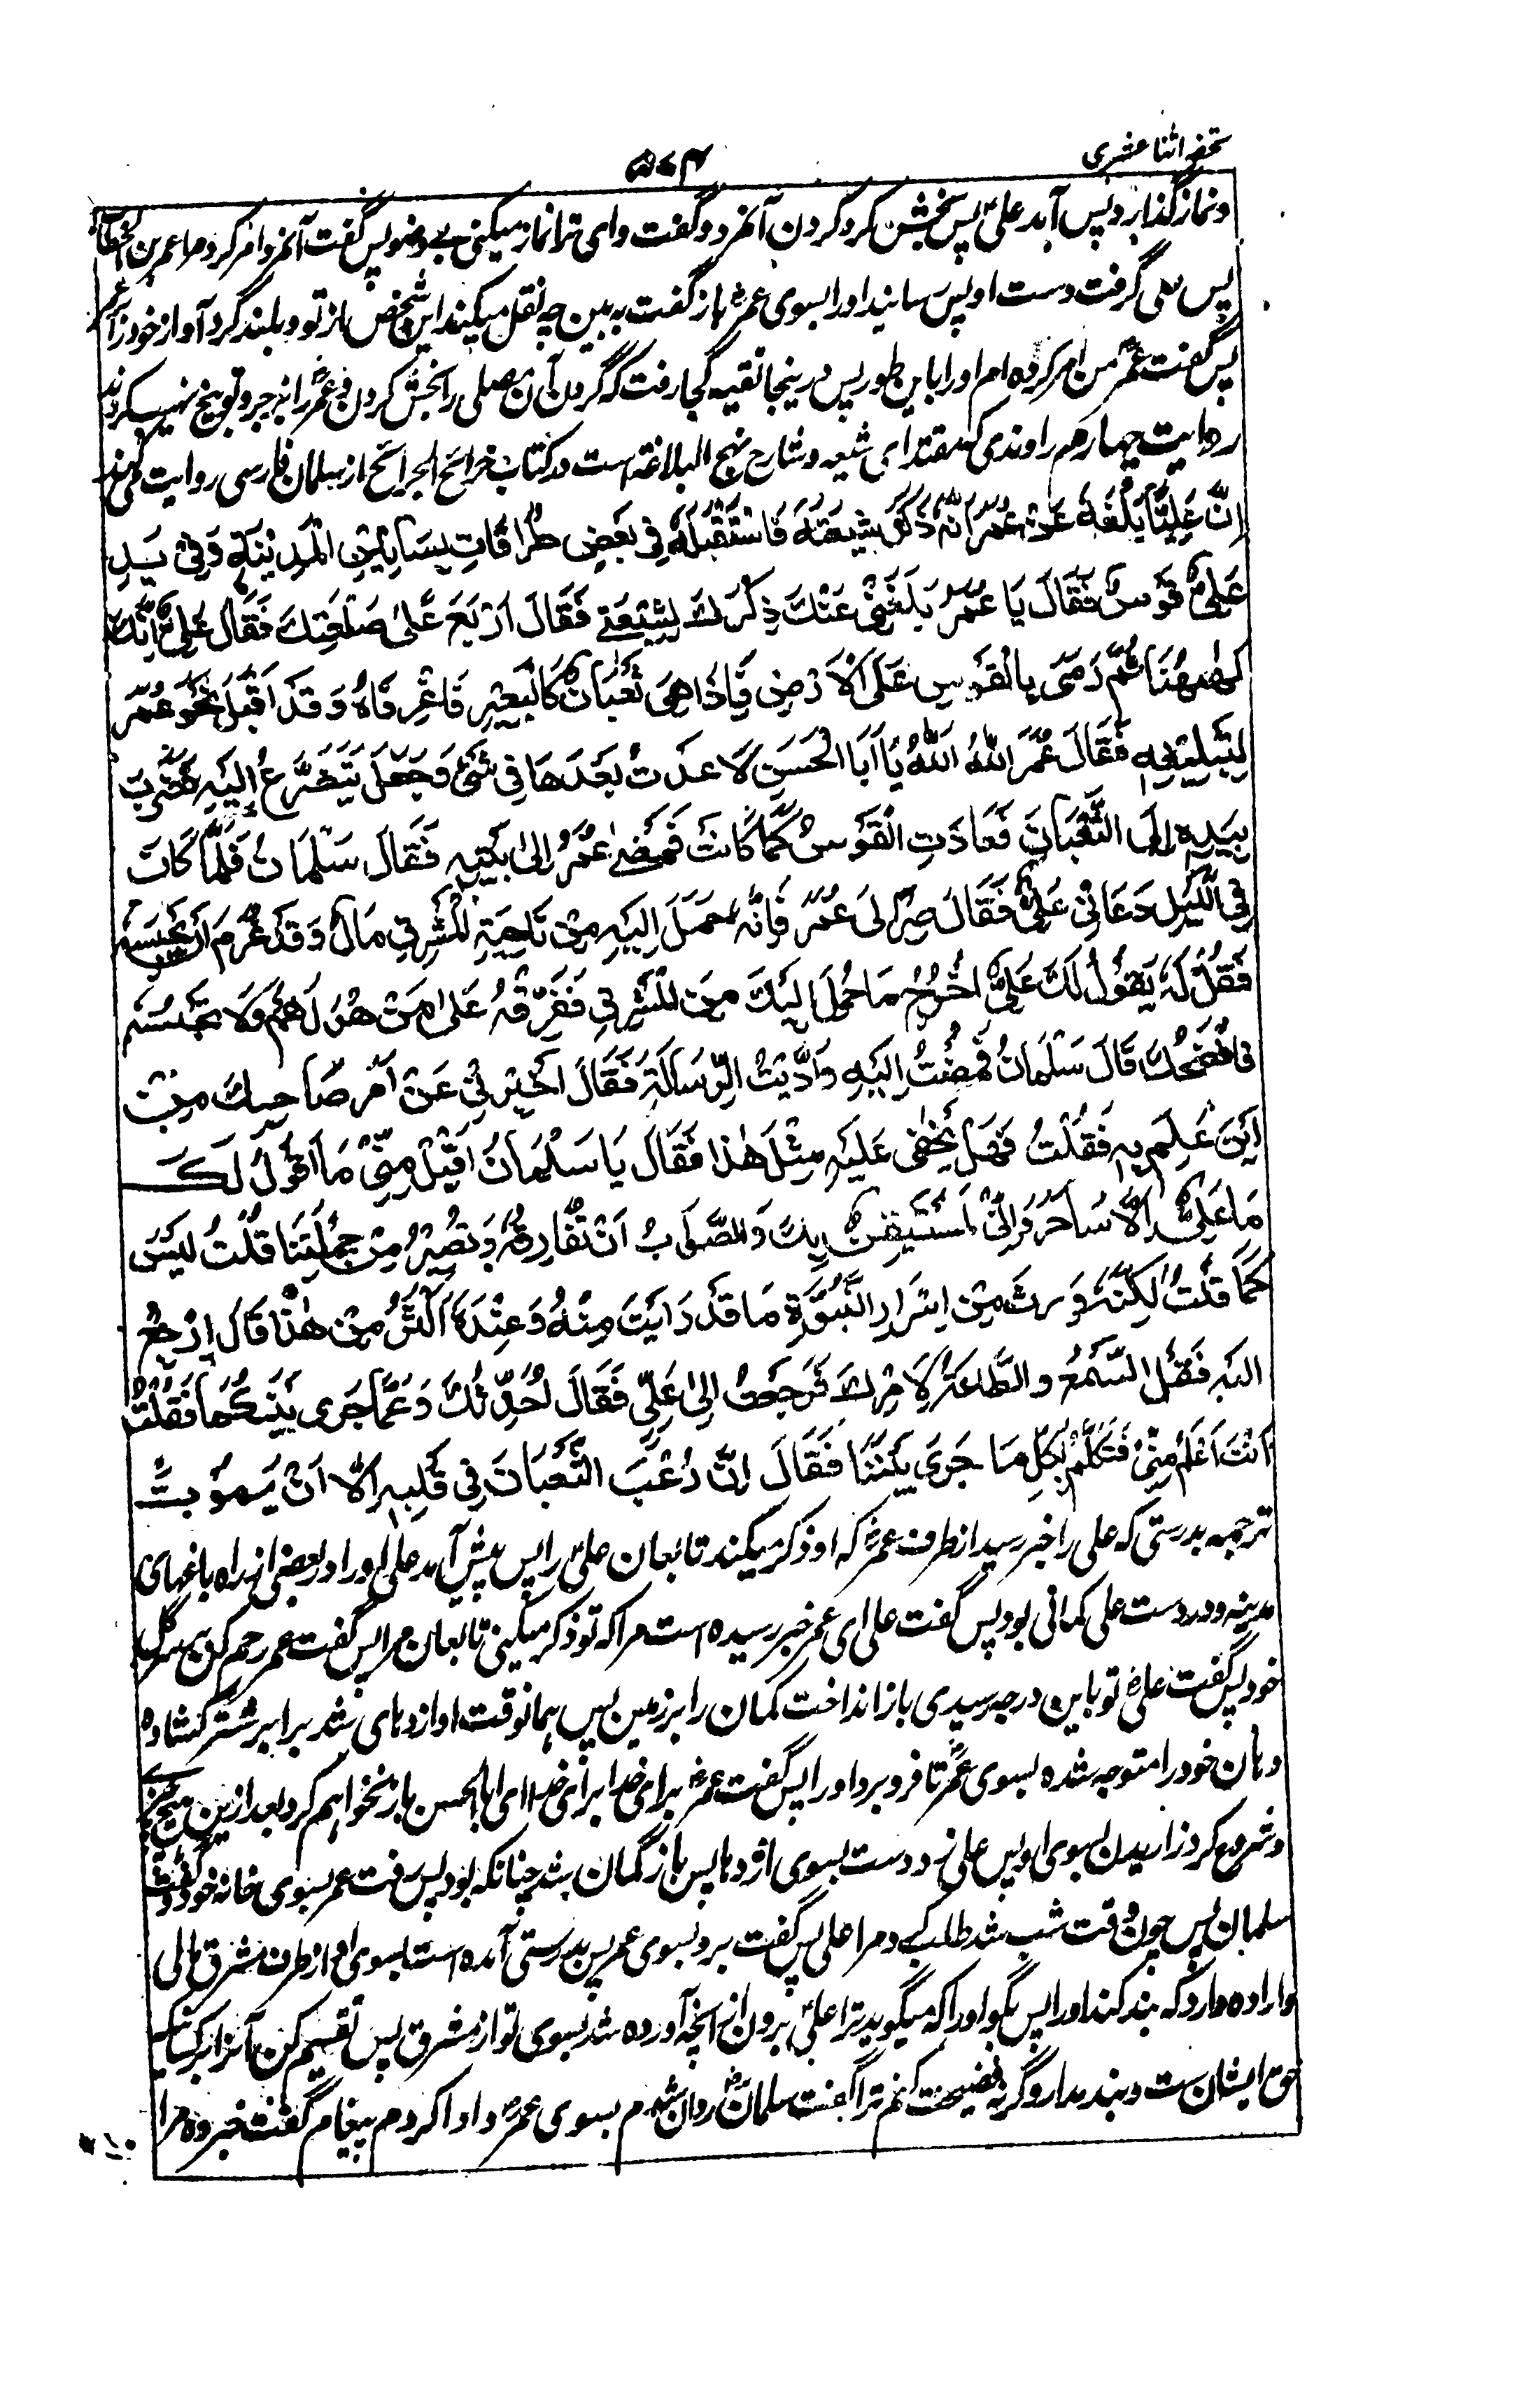 تحفه اثنا عشری
۵۷۴
ونماز گذارد پس آمد علی پس بخش کرد گردن آنمرد و گفت وای ترا نماز میکنی بے وضو پس گفت آنمرد امر کرد مرا عمر بن الخطاب
پس علی گرفت دست او پس رسانید اورا بسوی عمر باز گفت به بین چه نقل میکند این شخص از تو و بلند کرد آواز خود را بر عمر
پس گفت عمر من امر کرده ام اورا باین طور پس درینجا تقیه کجا رفت که گردن آن مصلی را بخش کردن و عمر را بزجر و توبیخ نهیب کردند
روایت چهارم راوندی که مقتدای شیعه و شارح نهج البلاغة است در کتاب خرائج الجرائح از سلمان فارسی روایت میکند
اِنَّ عَلِيًّا بَلَغَهُ عَنْ عُمَرَ اَنَّهُ ذَكَرَ شِيعَتَهُ فَاسْتَقْبَلَهُ فِي بَعْضِ طُرُقَاتِ بَسَاتِيْنِ الْمَدِيْنَةِ وَفِيْ يَدِ
عَلِيٍّ قَوْسٌ فَقَالَ يَا عُمَرُ بَلَغَنِيْ عَنْكَ ذِكْرُكَ لِشِيْعَتِيْ فَقَالَ ارْبَعْ عَلٰى صَلْعَتِكَ فَقَالَ عَلِيٌّ اِنَّكَ
لَهٰهُنَا ثُمَّ رَمٰى بِالْقَوْسِ عَلَى الْاَرْضِ فَاِذَا هِيَ ثُعْبَانٌ كَالْبَعِيْرِ فَاغِرٌ فَاهُ وَقَدْ اَقْبَلَ نَحْوَ عُمَرَ
لِيَبْتَلِعَهُ فَقَالَ عُمَرُ اَللّٰهُ اَللّٰهُ يَا اَبَا الْحَسَنِ لَا عُدْتُ بَعْدَهَا فِيْ شَيْءٍ وَجَعَلَ يَتَضَرَّعُ اِلَيْهِ فَضَرَبَ
بِيَدِهِ اِلَى الثُّعْبَانِ فَعَادَتِ الْقَوْسُ كَمَا كَانَتْ فَمَضٰى عُمَرُ اِلٰى بَيْتِهِ فَقَالَ سَلْمَانُ فَلَمَّا كَانَ
فِي اللَّيْلِ دَعَانِيْ عَلِيٌّ فَقَالَ صِرْ اِلٰى عُمَرَ فَاِنَّهُ حُمِلَ اِلَيْهِ مِنْ نَاحِيَةِ الْمَشْرِقِ مَالٌ وَقَدْ عَزَمَ اَنْ يَحْبِسَهُ
فَقُلْ لَهُ يَقُوْلُ لَكَ عَلِيٌّ اَخْرِجْ مَا حُمِلَ اِلَيْكَ مِنَ الْمَشْرِقِ فَفَرِّقْهُ عَلٰى مَنْ هُوَ لَهُمْ وَلَا تَحْبِسْهُ
فَاَفْضَحُكَ قَالَ سَلْمَانُ فَمَضَيْتُ اِلَيْهِ وَاَدَّيْتُ الرِّسَالَةَ فَقَالَ اَخْبِرْنِيْ عَنْ اَمْرِ صَاحِبِكَ مِنْ
اَيْنَ عَلِمَ بِهِ فَقُلْتُ فَهَلْ يَخْفٰى عَلَيْهِ مِثْلُ هٰذَا فَقَالَ يَا سَلْمَانُ اقْبَلْ مِنِّيْ مَا اَقُوْلُ لَكَ
مَا عَلِيٌّ اِلَّا سَاحِرٌ وَاِنِّيْ لَمُسْتَيْقِنٌ بِكَ وَالصَّوَابُ اَنْ تُفَارِقَهُ وَتَصِيْرَ مِنْ جُمْلَتِنَا قُلْتُ لَيْسَ
كَمَا قُلْتَ لٰكِنَّهُ وَرِثَ مِنْ اَسْرَارِ النُّبُوَّةِ مَا قَدْ رَاَيْتَ مِنْهُ وَعِنْدَهُ اَكْثَرُ مِنْ هٰذَا قَالَ ارْجِعْ
اِلَيْهِ فَقُلْ السَّمْعُ وَالطَّاعَةُ لِاَمْرِكَ فَرَجَعْتُ اِلٰى عَلِيٍّ فَقَالَ اُحَدِّثُكَ عَمَّا جَرٰى بَيْنَكُمَا فَقُلْتُ
اَنْتَ اَعْلَمُ مِنِّيْ فَتَكَلَّمَ بِكُلِّ مَا جَرٰى بَيْنَنَا فَقَالَ اِنَّ رُعْبَ الثُّعْبَانِ فِيْ قَلْبِهِ اِلٰى اَنْ يَمُوْتَ
ترجمه بدرستی که علی را خبر رسید از طرف عمر که او ذکر میکند تابعان علی را پس پیش آمد علی اورا در بعضی از راه باغهای
مدینه و در دست علی کمانی بود پس گفت علی ای عمر خبر رسیده است مرا که تو ذکر میکنی تابعان مرا پس گفت عمر رحم کن بر
خود پس گفت علی تو باین درجه رسیدی باز انداخت کمان را بر زمین پس همانوقت او اژدهای شد برابر شتر کشاده
دهان خود را متوجه شده بسوی عمر تا فرو برد اورا پس گفت عمر برای خدا برای خدا ای ابا الحسن باز نخواهم کرد بعد ازین هیچ چیز
و شروع کرد زاریدن بسوی او پس علی زد دست بسوی اژدها پس باز کمان شد چنانکه بود پس رفت عمر بسوی خانه خود گفت
سلمان پس چون وقت شب شد طلب کرد مرا علی پس گفت برو بسوی عمر پس بدرستی آمده است بسوی او از طرف مشرق مالی
و اراده دارد که بند کند اورا پس بگو اورا که میگوید ترا علی برون آر آنچه آورده شد بسوی تو از مشرق پس تقسیم کن آنرا بر کسانیکه
حق ایشان ست و بند مدار وگرنه فضیحت کنم ترا گفت سلمان روان شدم بسوی عمر و ادا کردم پیغام گفت خبر ده مرا